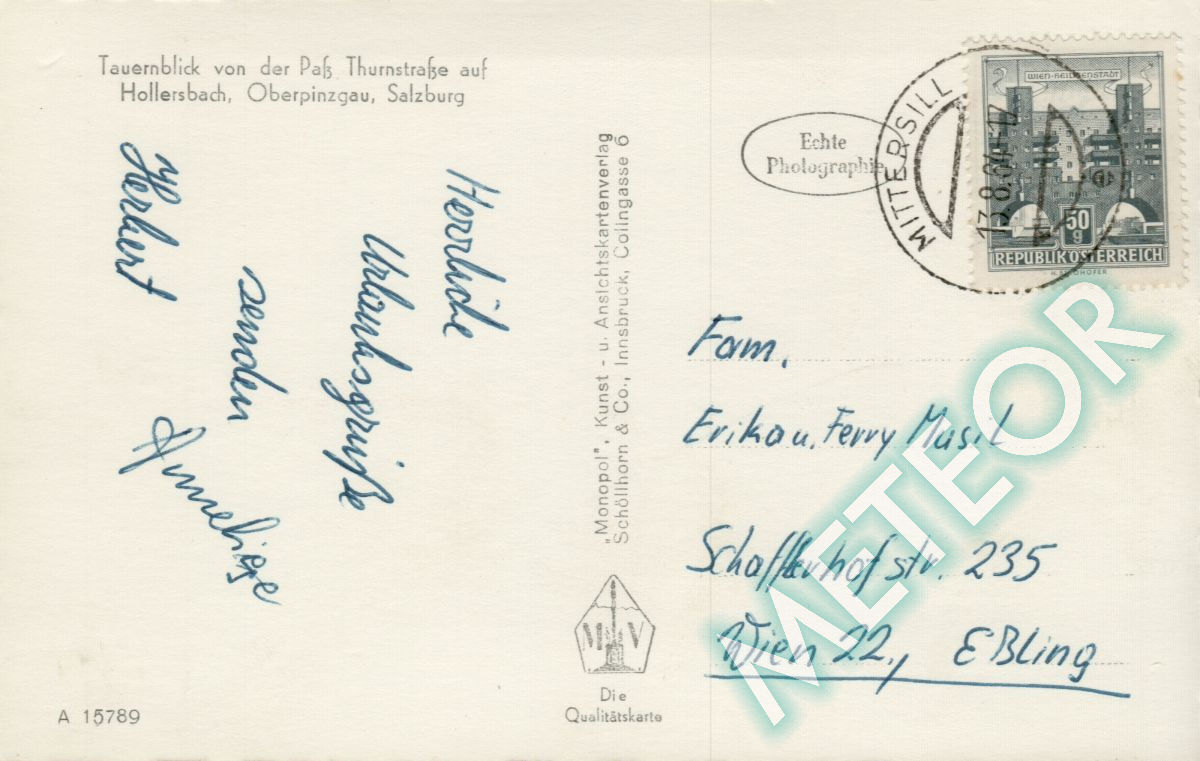 Tauernblick von der Paß Thurnstraße auf
Hollersbach, Oberpinzgau, Salzburg
Herrliche
Urlaubsgrüße
senden
Herbert
Anneliese
A 15789
"Monopol", Kunst - u. Ansichtskartenverlag
Schöllhorn & Co., Innsbruck, Colingasse 6
M V
Die
Qualitätskarte
Echte
Photographie
MITTERSILL
13.8.64-17
WIEN-HEILIGENSTADT
50
g
REPUBLIK ÖSTERREICH
Fam.
Erika u. Ferry Musil
Schafflerhofstr. 235
Wien 22., Eßling
METEOR